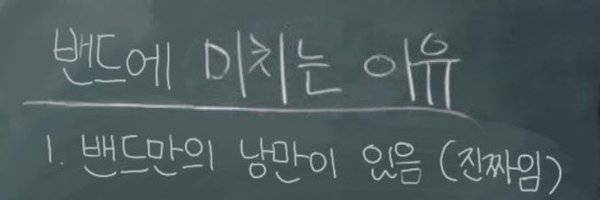 밴드에 미치는 이유
1. 밴드만의 낭만이 있음 (진짜임)